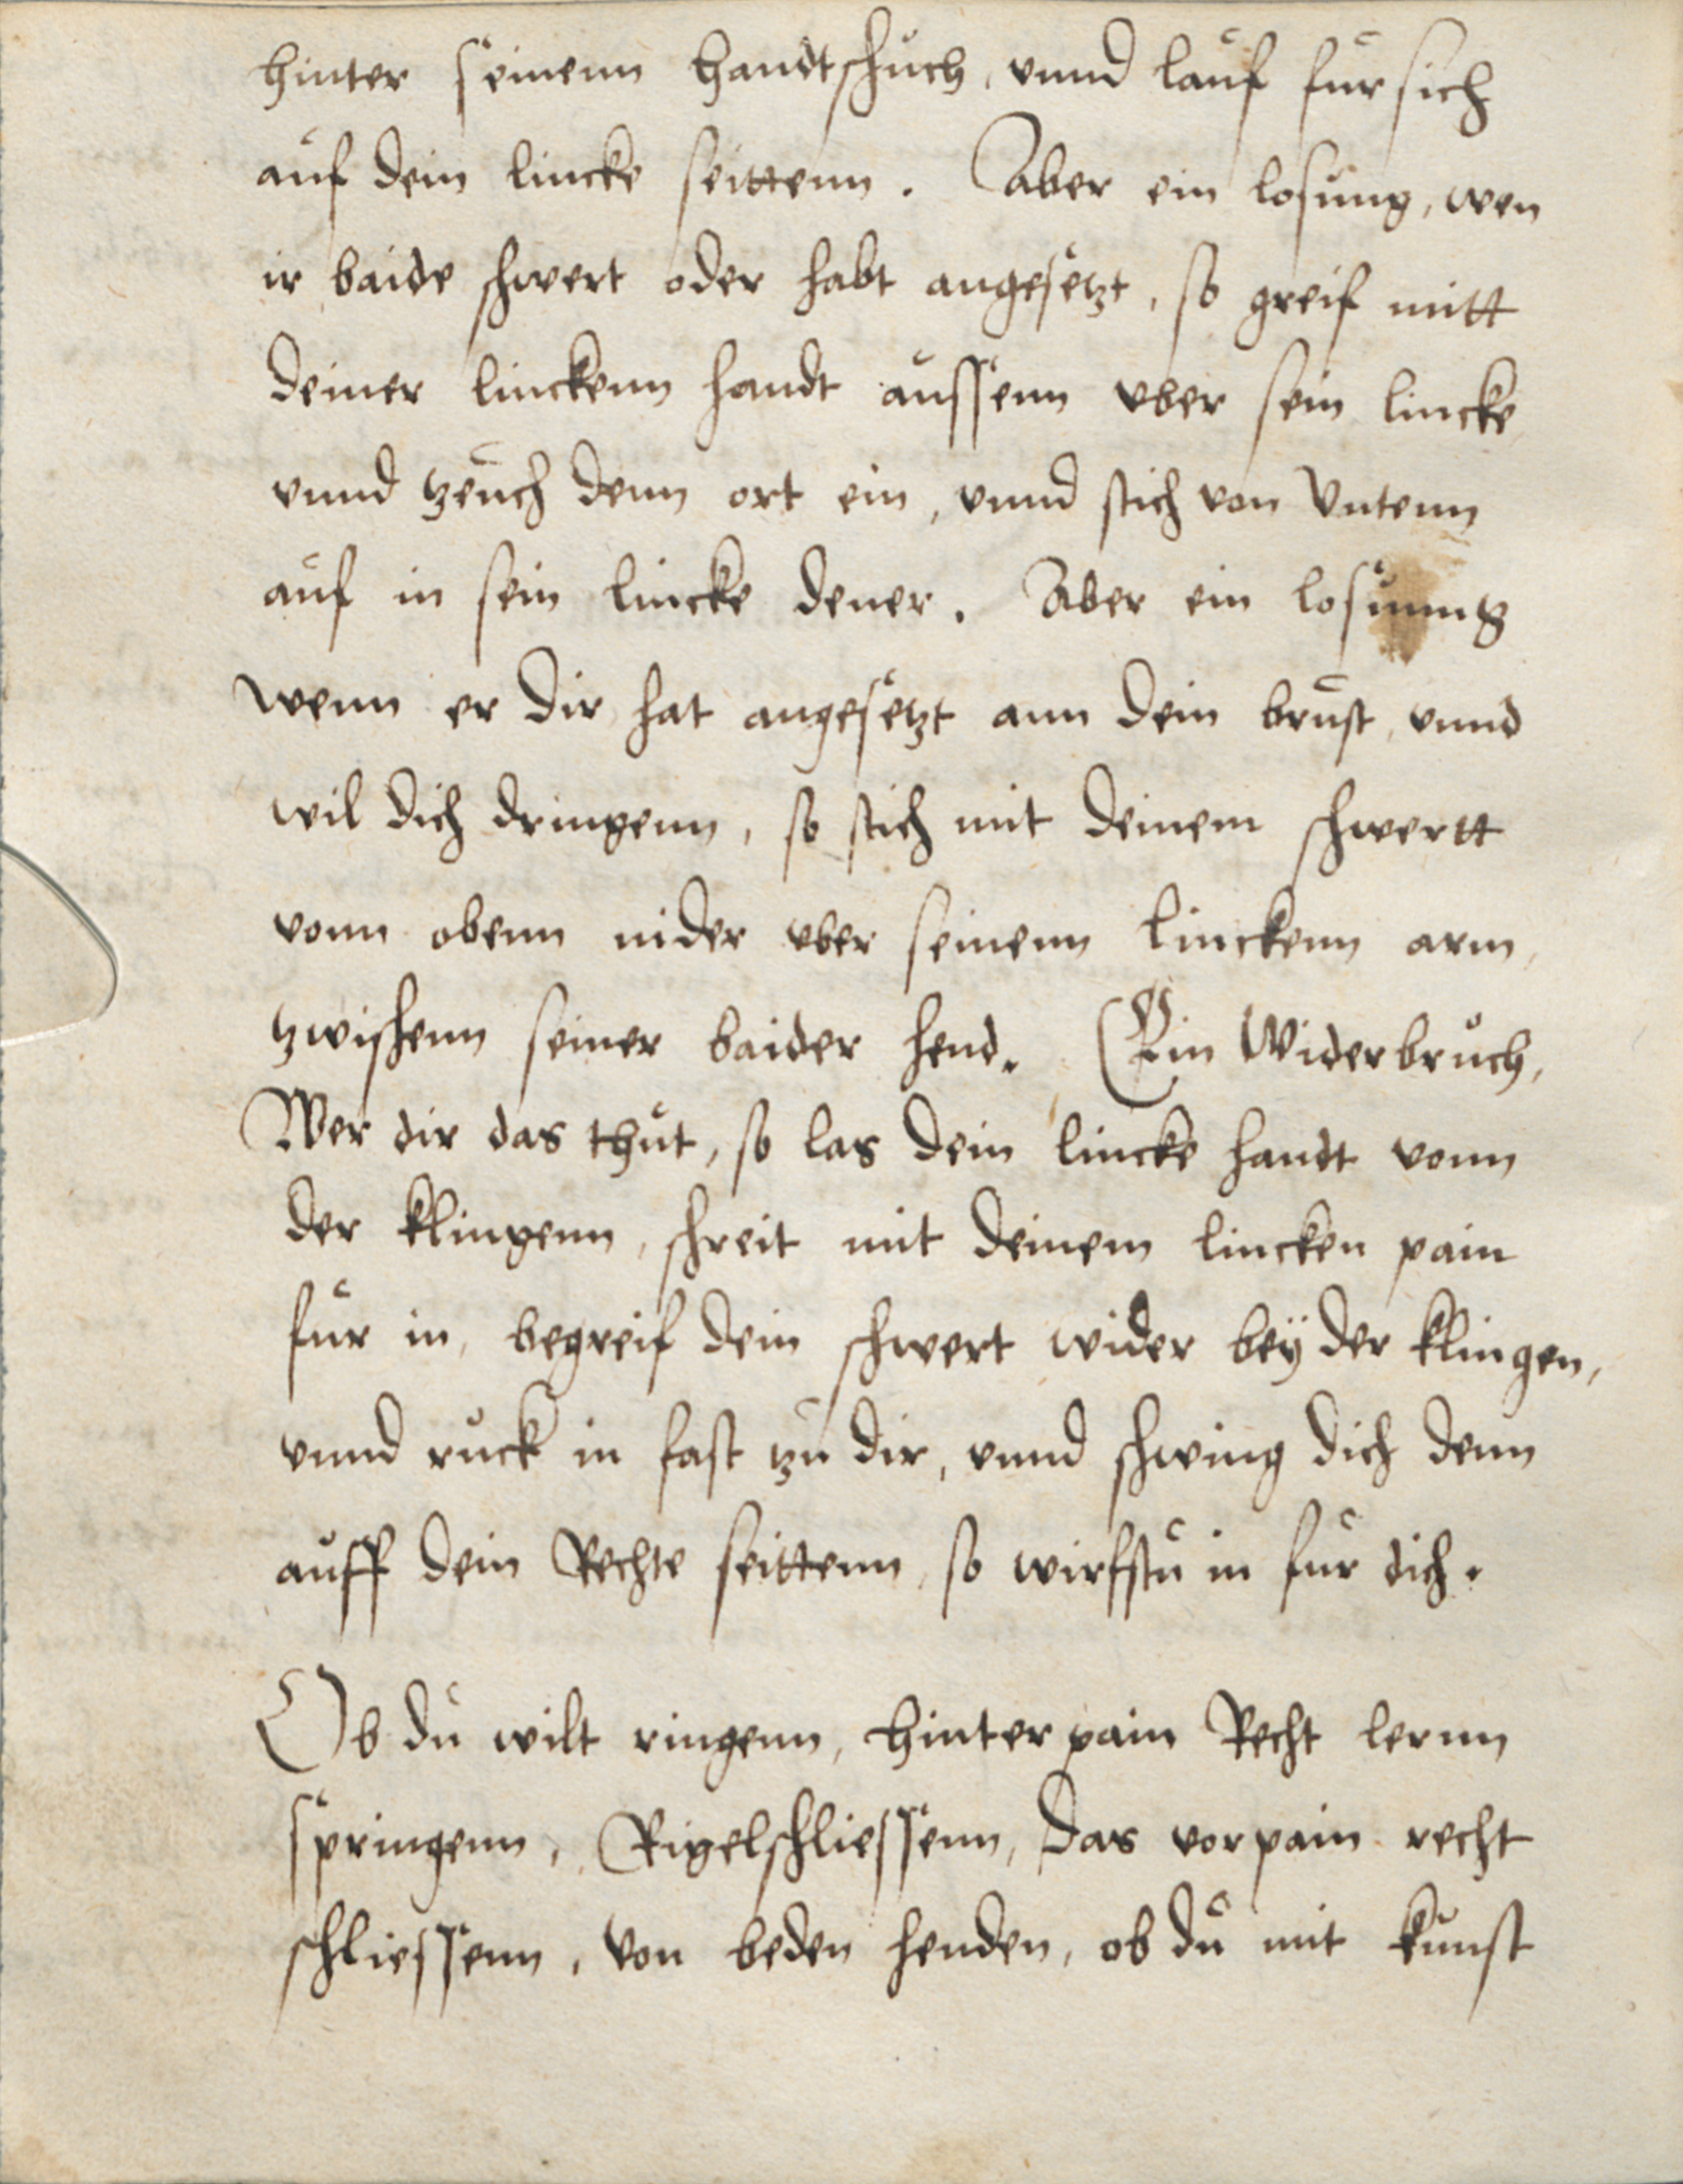 hinter seinenn handtschuch, vnnd lauf für sich
auf dein lincke seittenn. Aber ein losung, wen
ir baide schwert oder habt angesetzt, so greif mitt
deiner linckenn handt aussenn vber sein lincke
vnnd zeuch denn ort ein, vnnd stich von Vntenn
auf in sein lincke dener. Aber ein losunng
wenn er dir hat angesetzt ann dein brust, vnnd
wil dich dringenn, so stich mit deinem schwertt
vonn obenn nider vber seinenn linckenn arm,
zwischenn seiner baider hend. Ein Widerbruch,
Wer dir das thut, so las dein lincke handt vonn
der klingenn, schreit mit deinem lincken pain
für in, begreif dein schwert wider bey der klingen,
vnnd ruck in fast zu dir, vnnd schwing dich denn
auff dein Rechte seittenn, so wirfstu in für dich.
Ob du wilt ringenn, hinter pain Recht lernn
springenn, Rigelschliessenn, das vorpain recht
schliessenn, von beden henden, ob du mit kunst